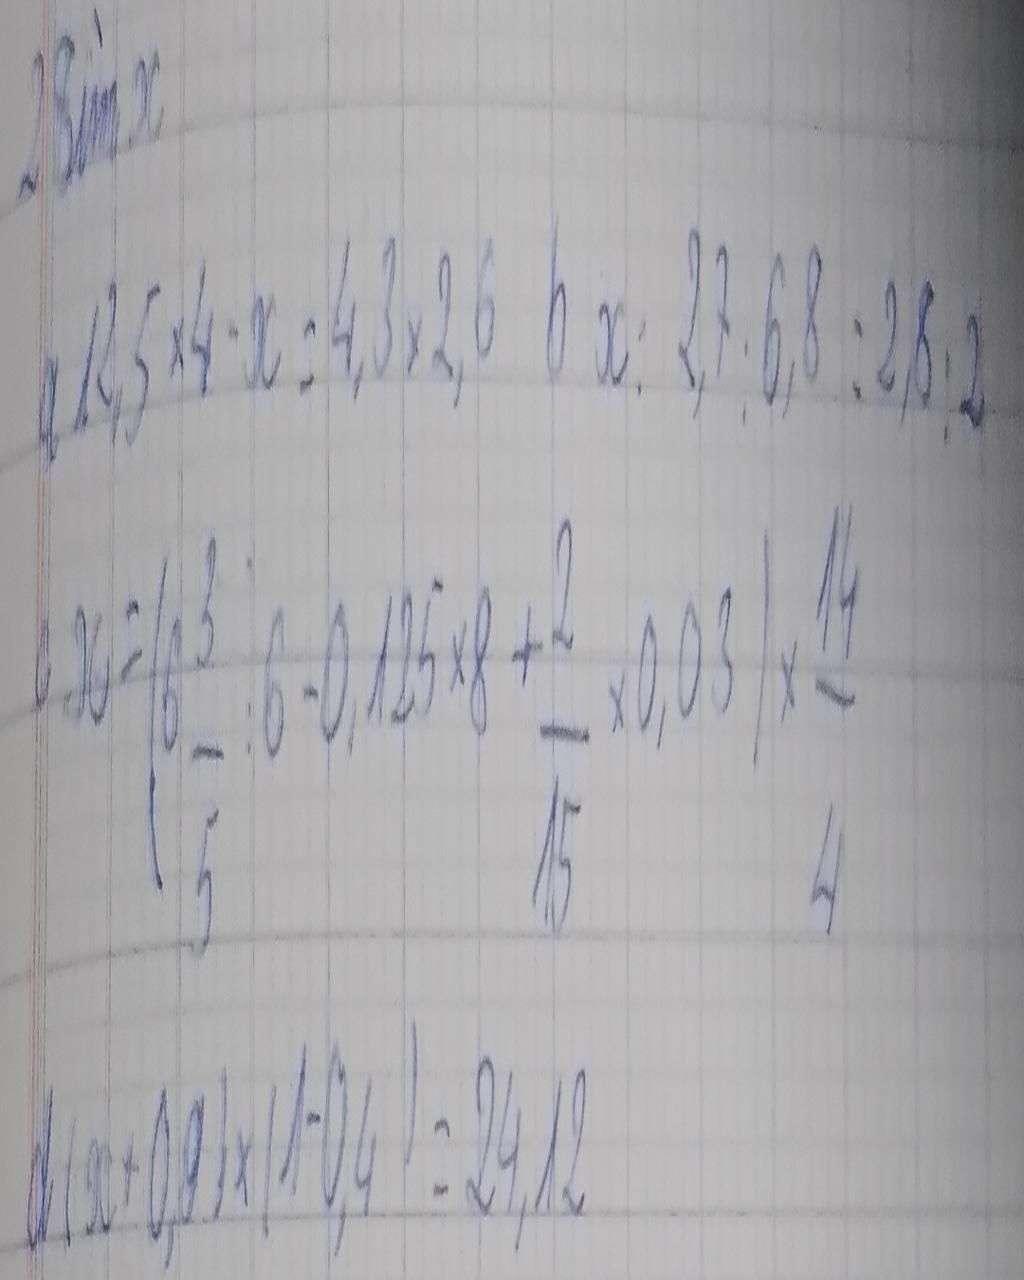 2 tìm x
a 12,5 × 4 - x = 4,3 × 2,6 b x : 2,7 : 6,8 = 2,6 : 2
c x = (6 3/5 : 6 - 0,125 × 8 + 2/15 × 0,03) × 14/4
d (x + 0,9) × (1 - 0,4) = 24,12